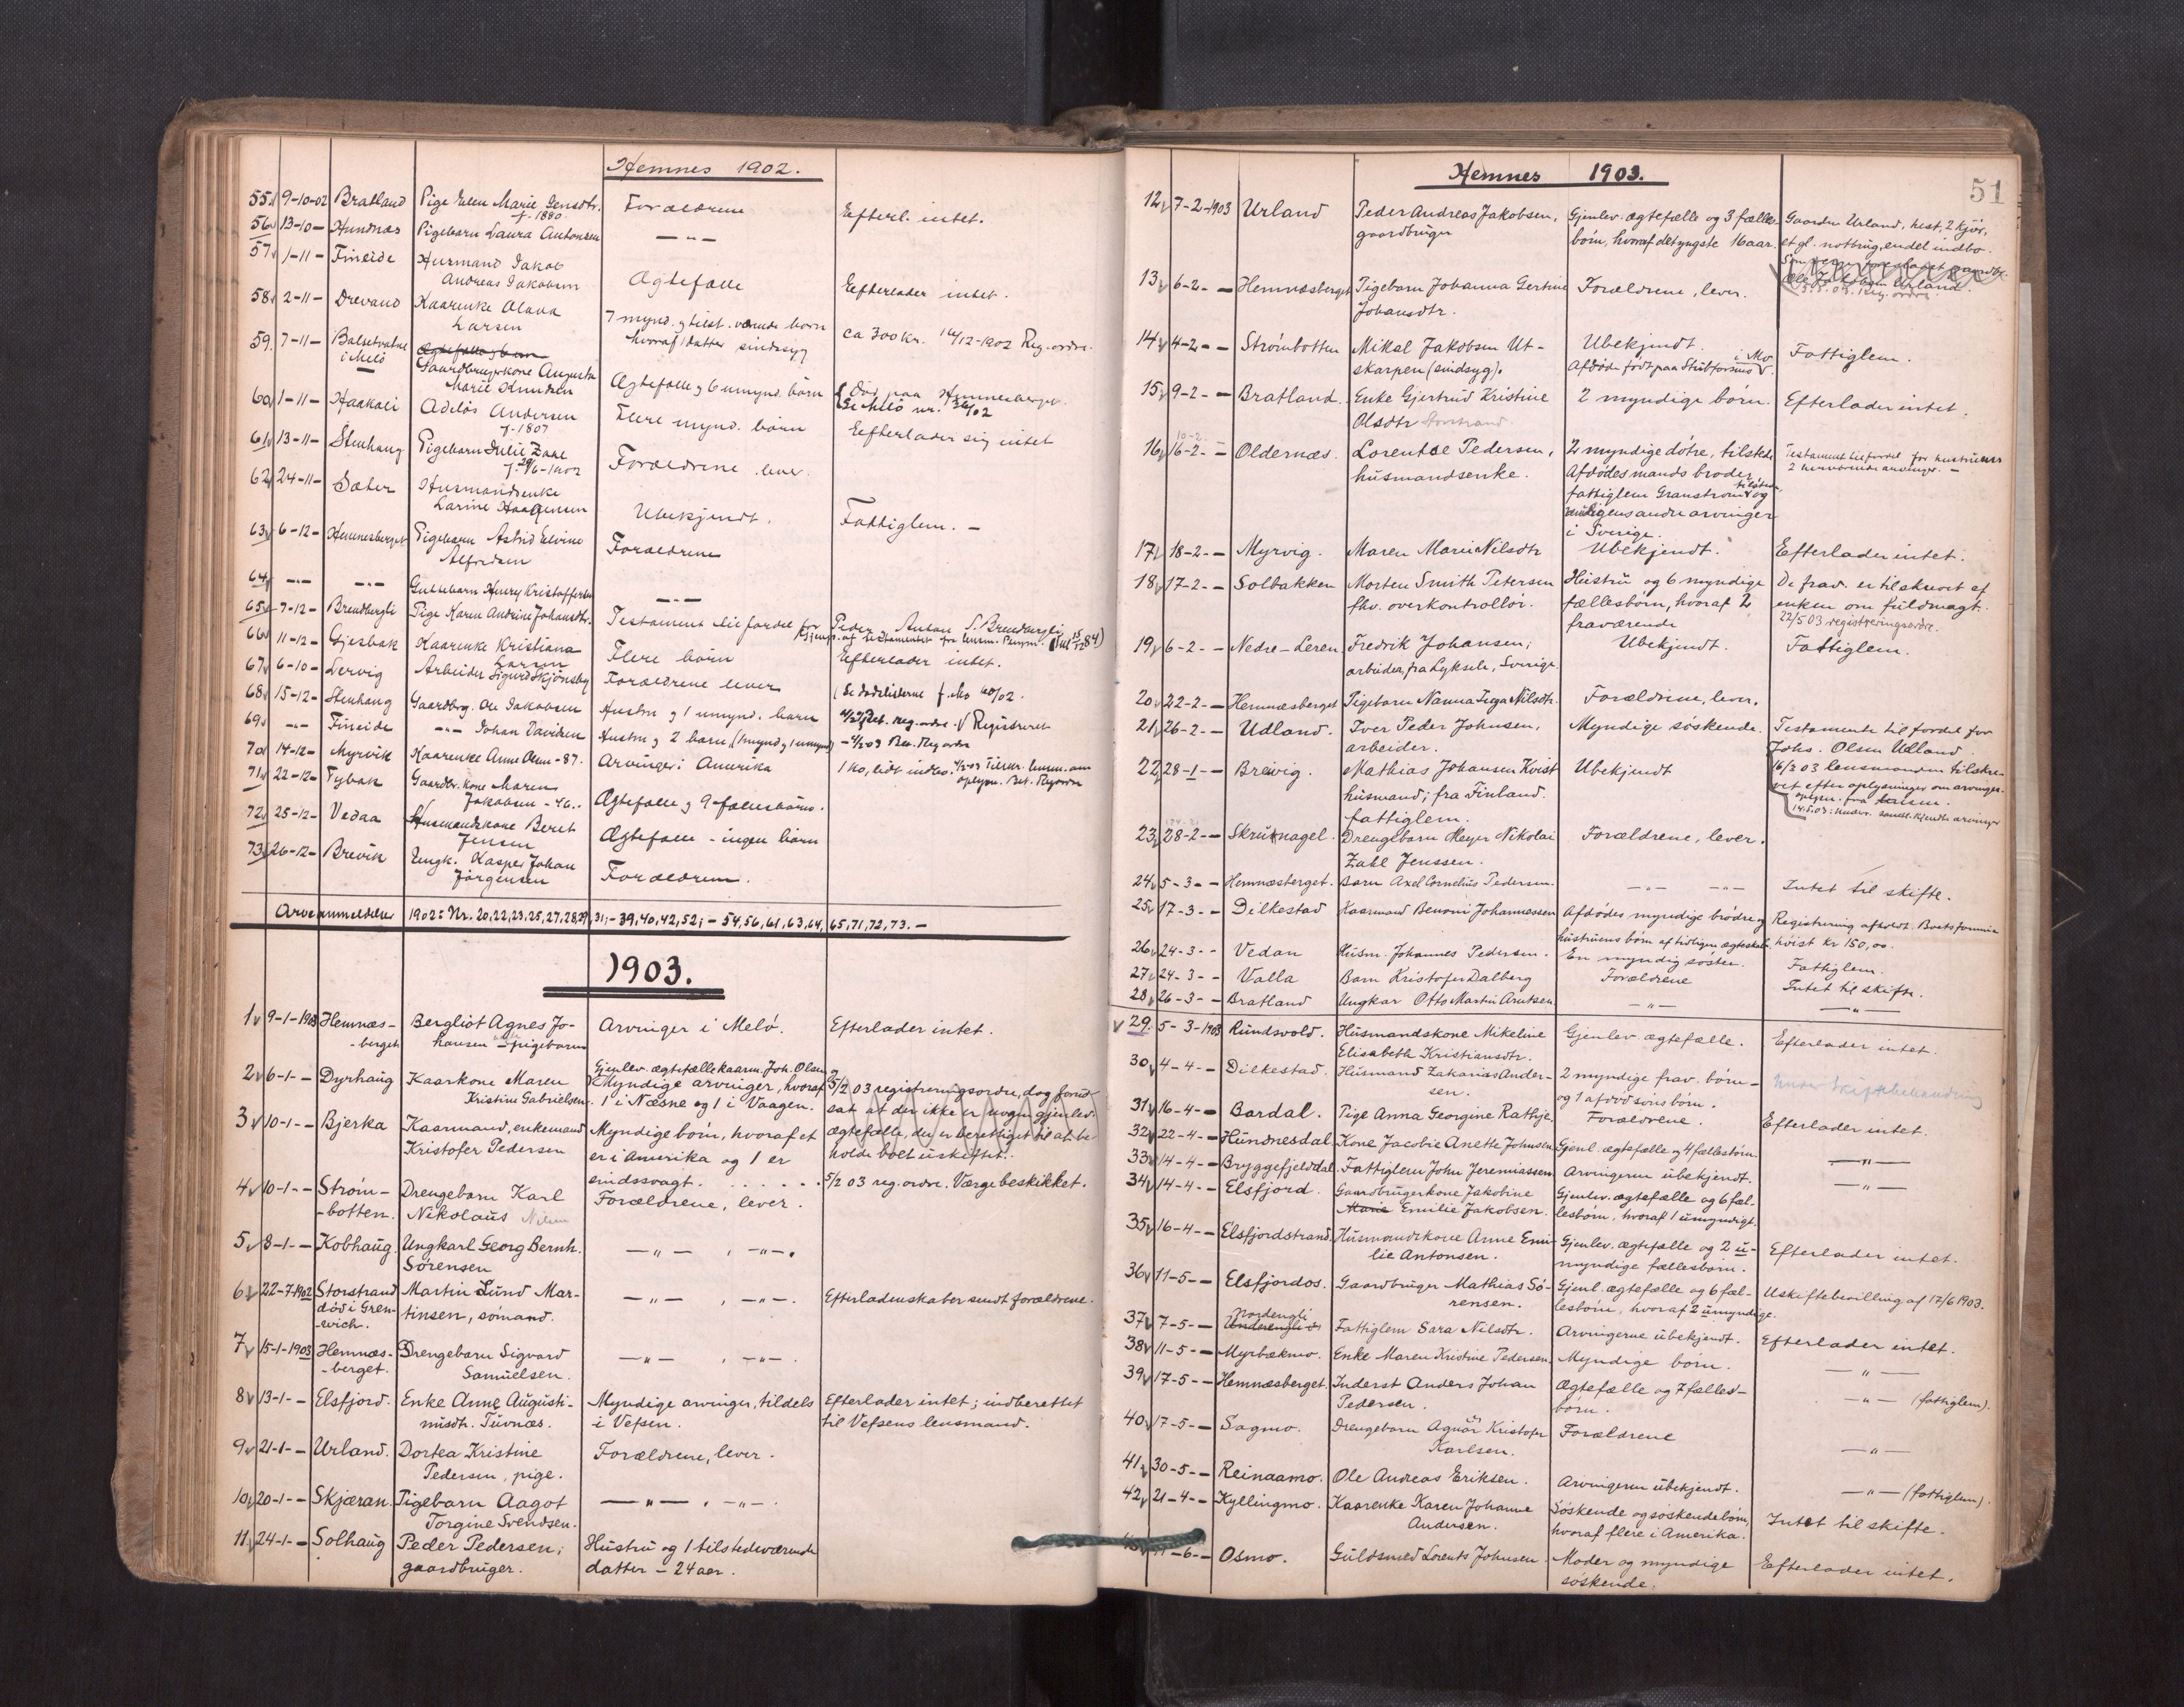 Hemnes 1902.
55 9-10-02 Bratland Pige Elen Marie Jensdtr. Forældrene Efterl. intet.
f. 1880
56 13-10- Hundnæs Pigebarn Laura Antonsen —"—
57 1-11- Fineide Husmand Jakob
Andreas Jakobsen Ægtefælle Efterlader intet.
58 2-11- Drevand Kaarenke Olava
Larsen 7 mynd. og tilst. værende børn ca 300 kr. 14/12-1902 Reg. ordre.
hvoraf 1 datter sindssyg
59. 7-11- Balsetvatne
i Melø Ægtefælle og børn
Gaardbrugerkone Augusta
Marie Knudsen Ægtefælle og 6 umynd. børn Død paa Hemnesberget.
Se Melø nr. 36/02
60 1-11- Haakali Adeløs Andersen Flere mynd. børn Efterlader sig intet
f. 1807
61 13-11- Stenhaug Pigebarn Julie Zane
f. 29/6-1902 Forældrene lever.
62 24-11- Sæter Husmandsenke
Larine Haagensen Ubekjendt. Fattiglem. —
63 6-12- Hemnesberget Pigebarn Astrid Elvine
Alfredsen Forældrene
64 —"— —"— Guttebarn Henry Kristoffersen —"—
65 7-12- Brendbergli Pige Karen Andrine Johansdtr. Testament til fordel for Peder Antan S. Brendbergli
66 11-12- Gjesbak Kaarenke Kristiana
Larsen Flere børn Efterlader intet.
67 6-10- Lervig Arbeider Sigurd Skjønsby Forældrene lever (Se dødslisterne f. Mo 40/02.
68 15-12- Stenhaug Gaardbrg. Ole Jakobsen Hustru og 1 umynd. barn 4/2 03 Bet. reg. ordre. Registreret
69 —"— Fineide —"— Johan Davidsen Hustru og 2 børn, (1 mynd og 1 umynd) - 4/2 03 Bet. Reg ordre
70 14-12- Myrvik Kaarenke Anne Olsen - 87. Arvinger i Amerika 1 ko, lidt indbo. 4/2-03 Tilskr. lensm. om
oplysn. Bet. Reg ordre
71 22-12- Tybæk Gaardbr. kone Maren
Jakobsen - 46. Ægtefælle og 9 fællesbørn.
72 25-12- Vedaa Husmandskone Beret
Jensen Ægtefælle - ingen børn
73 26-12- Brevik Ungk. Kasper Johan
Jørgensen Forældrene.
Arveanmeldelser 1902: Nr. 20,22,23,25,27,28,29,31,- 39,40,42,52,- 54,56,61,63,64, 65,71,72,73. —
1903.
1 9-1-1903 Hemnæs-
-berget Bergliot Agnes Jo-
hansen - pigebarn Arvinger i Melø. Efterlader intet.
2 6-1-- Dyrhaug Kaarkone Maren
Kristine Gabrielsen. Gjenlev. ægtefælle kaarm. Joh. Olsen
Myndige arvinger, hvoraf
1 i Næsne og 1 i Vaagen. 5/2 03 registreringsordre, dog forud-
sat at der ikke er nogen gjenlev.
ægtefælle, der er berettiget til at be-
holde boet uskiftet.
3 10-1-- Bjerka Kaarmand, enkemand
Kristofer Pedersen Myndige børn, hvoraf et
er i Amerika og 1 er
sindssvagt. . . . . . . 5/2 03 reg. ordre. Værge beskikket.
4 10-1-- Strøm-
-botten. Drengebarn Karl
Nikolaus Nilsen Forældrene, lever.
5 8-1-- Kobhaug. Ungkarl Georg Bernh.
Sørensen —"— , —"—.
6 22-7-1902 Storstrand
død i Green-
wich. Martin Lund Mar-
tinsen, sømand. —"— , —"—. Efterladenskaber sendt forældrene.
7 15-1-1903 Hemnæs-
-berget. Drengebarn Sigvard
Samuelsen. —"— , —"—.
8 13-1-- Elsfjord. Enke Anne Augusti-
nusdtr. Tuvnæs. Myndige arvinger, tildels
i Vefsen. Efterlader intet; indberettet
til Vefsens lensmand.
9 21-1-- Urland. Dortea Kristine
Pedersen, pige. Forældrene, lever.
10 20-1-- Skjæran. Pigebarn Aagot
Torgine Svendsen. —"— , —"—.
11 24-1-- Solhaug Peder Pedersen;
gaardbruger. Hustru og 1 tilstedeværende
datter - 24 aar.
Hemnes 1903. 51
12 7-2-1903 Urland Peder Andreas Jakobsen,
gaardbruger Gjenlev. ægtefælle og 3 fælles-
børn, hvoraf det yngste 16 aar. Gaarden Urland, hest, 2 kjør,
et gl. notbrug, endel indbo.
Ole Jakobsen Urland.
13 6-2-- Hemnæsberget Pigebarn Johanna Gertine
Johansdtr. Forældrene, lever.
14 4-2-- Strømbotten Mikal Jakobsen Ut-
skarpen (sindsyg). Ubekjendt.
Afdøde født paa Stubforsmo i Mo. Fattiglem.
15 9-2-- Bratland. Enke Gjertrud Kristine
Olsdtr Storstrand 2 myndige børn. Efterlader intet.
16 10-2.
16-2-- Oldernæs. Lorentse Pedersen,
husmandsenke. 2 myndige døtre, tilstede
Afdødes mands broder
fattiglem Granstrøm tilstede og
muligens andre arvinger
i Sverige. Testament til fordel for hustruens
2 nærværende arvinger. —
17 18-2-- Myrvig. Maren Marie Nilsdtr Ubekjendt. Efterlader intet.
18 17-2-- Solbakken Morten Smith Petersen
fhv. overkontrollør. Hustru og 6 myndige
fællesbørn, hvoraf 2
fraværende De frav. er tilskrevet af
enken om fuldmagt.
22/5 03 registreringsordre.
19 6-2-- Nedre-Leren Fredrik Johansen;
arbeider, fra Lyksele, Sverige. Ubekjendt. Fattiglem.
20 22-2-- Hemnæsberget Pigebarn Nanna Inga Nilsdtr. Forældrene, lever.
21 26-2-- Udland. Iver Peder Johnsen,
arbeider. Myndige søskende. Testamente til fordel for
Johs. Olsen Udland.
22 28-1-- Breivig. Mathias Johansen Kvist
husmand; fra Finland.
fattiglem. Ubekjendt 16/3 03 lensmanden tilskre-
vet efter oplysninger om arvinger.
23 28-2-- Skruknagel. Drengebarn Meyer Nikolai
Zahl Jenssen. Forældrene, lever.
24 5-3-- Hemnæsberget. Barn Axel Cornelius Pedersen. —"— —"— Intet til skifte.
25 17-3-- Dilkestad Kaarmand Benoni Johannessen Afdødes myndige brødre og
hustruens børn af tidligere ægteskab. Registrering afholdt. Boets formue
høist kr 150,00.
26 24-3-- Vedaa Husm. Johannes Pedersen. En myndig søster. Fattiglem.
27 24-3-- Valla Barn Kristofer Dalberg Forældrene Intet til skifte.
28 26-3-- Bratland Ungkar Otto Martin Arntsen —"— —"—
29. 5-3-1903 Rundsvold. Husmandskone Mikeline
Elisabeth Kristiansdtr. Gjenlev. ægtefælle. Efterlader intet.
30 4-4-- Dilkestad. Husmand Zakarias Ander-
sen. 2 myndige frav. børn -
og 1 afdød søns børn. Under skiftebehandling
31 16-4-- Bardal. Pige Anna Georgine Rathje. Forældrene. Efterlader intet.
32 22-4-- Hundnesdal Kone Jacobie Anette Johnsen Gjenl. ægtefælle og 4 fællesbørn. —"—
33 14-4-- Bryggefjelddal. Fattiglem John Jeremiassen Arvingerne ubekjendt. —"—
34 14-4-- Elsfjord. Gaardbrugerkone Jakobine
Marie Emilie Jakobsen. Gjenlev. ægtefælle og 6 fæl-
lesbørn, hvoraf 1 umyndigt.
35 16-4-- Elsfjordstrand. Husmandskone Anne Emi-
lie Antonsen. Gjenlev. ægtefælle og 2 u-
myndige fællesbørn. Efterlader intet.
36 11-5-- Elsfjordos. Gaardbruger Mathias Sø-
rensen. Gjenl. ægtefælle og 6 fæl-
lesbørn, hvoraf 2 umyndige. Uskiftebevilling af 17/6 1903.
37 7-5-- Nordengli
Fattiglem Sara Nilsdtr. Arvingerne ubekjendt. Efterlader intet.
38 11-5-- Myrbækmo. Enke Maren Kristine Pedersen. Myndige børn. —"—
39 17-5-- Hemnæsberget. Inderst Anders Johan
Pedersen. Ægtefælle og 7 fælles-
børn. —"— (fattiglem).
40 17-5-- Sagmo. Drengebarn Agnar Kristofer
Karlsen. Forældrene —"—
41 30-5-- Reinaamo. Ole Andreas Eriksen. Arvingerne ubekjendt. —"— (fattiglem).
42 21-4-- Kyllingmo. Kaarenke Karen Johanne
Andersen. Søskende og søskendebørn,
hvoraf flere i Amerika. Intet til skifte.
-6-- Osmo. Guldsmed Lorents Johnsen Moder og myndige
søskende. Efterlader intet.